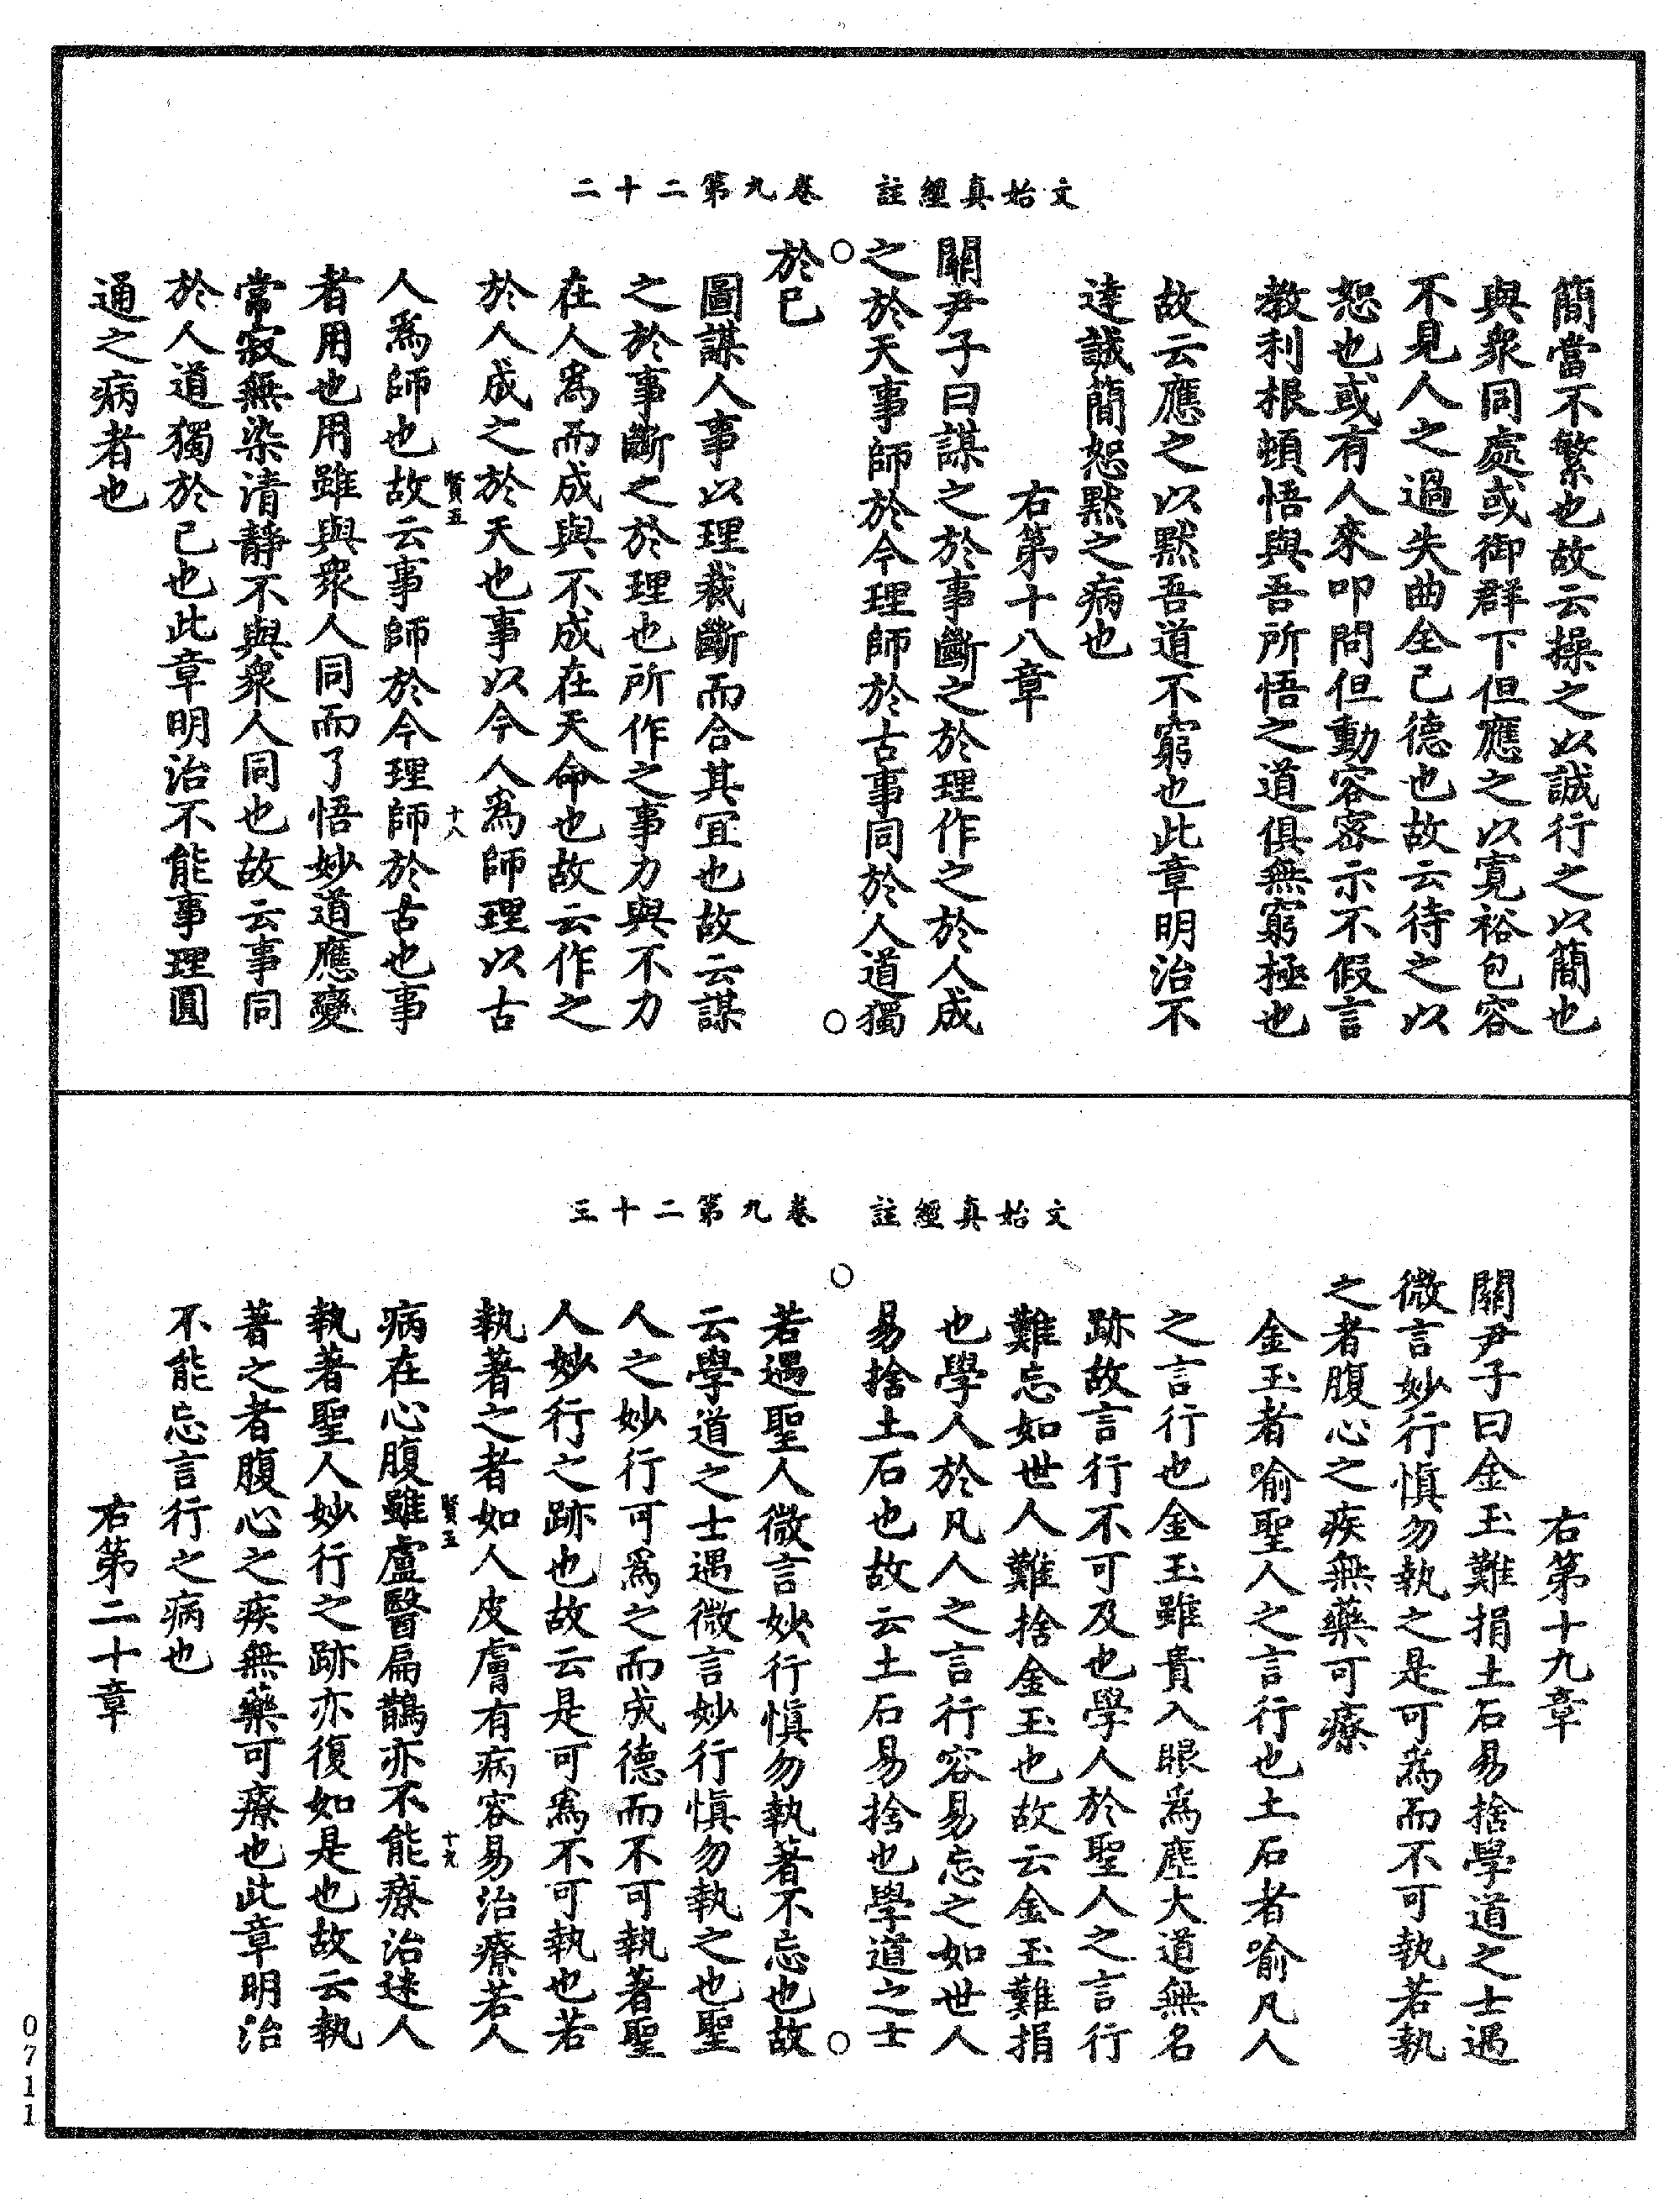 文始真經註　卷九第二十二
簡當不繁也故云操之以誠行之以簡也
與衆同處或御群下但應之以寬裕包容
不見人之過失曲全己德也故云待之以
恕也或有人來叩問但動容密示不假言
教利根頓悟與吾所悟之道俱無窮極也
故云應之以默吾道不窮也此章明治不
達誠簡恕默之病也
右第十八章
關尹子曰謀之於事斷之於理作之於人成
之於天事師於今理師於古事同於人道獨
於已
圖謀人事以理裁斷而合其宜也故云謀
之於事斷之於理也所作之事力與不力
在人爲而成與不成在天命也故云作之
於人成之於天也事以今人爲師理以古
賢五　十八
人爲師也故云事師於今理師於古也事
者用也用雖與衆人同而了悟妙道應變
常寂無染清靜不與衆人同也故云事同
於人道獨於己也此章明治不能事理圓
通之病者也
文始真經註　卷九第二十三
右第十九章
關尹子曰金玉難捐土石易捨學道之士遇
微言妙行愼勿執之是可爲而不可執若執
之者腹心之疾無藥可療
金玉者喻聖人之言行也土石者喻凡人
之言行也金玉雖貴入眼爲塵大道無名
跡故言行不可及也學人於聖人之言行
難忘如世人難捨金玉也故云金玉難捐
也學人於凡人之言行容易忘之如世人
易捨土石也故云土石易捨也學道之士
若遇聖人微言妙行愼勿執著不忘也故
云學道之士遇微言妙行愼勿執之也聖
人之妙行可爲之而成德而不可執著聖
人妙行之跡也故云是可爲不可執也若
執著之者如人皮膚有病容易治療若人
賢五　十九
病在心腹雖盧醫扁鵲亦不能療治迷人
執著聖人妙行之跡亦復如是也故云執
著之者腹心之疾無藥可療也此章明治
不能忘言行之病也
右第二十章
0711